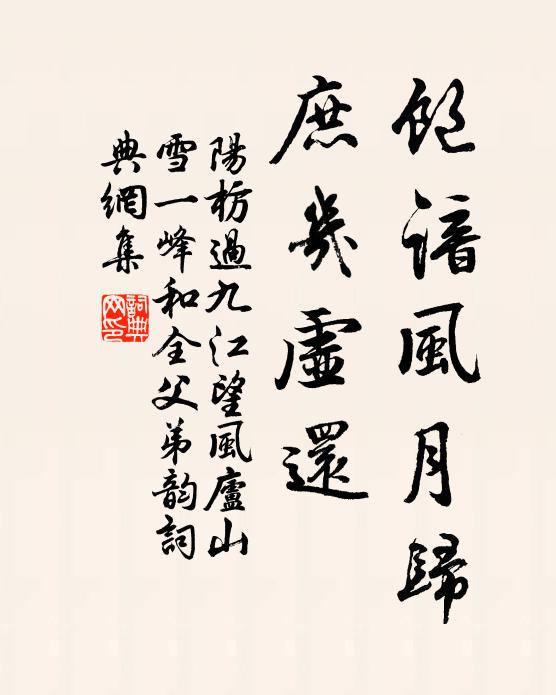 飽諳風月歸
庶幾虛還
陽枋過九江望風廬山
雪一峰和全父弟韵詞
典網集
詞典
网印